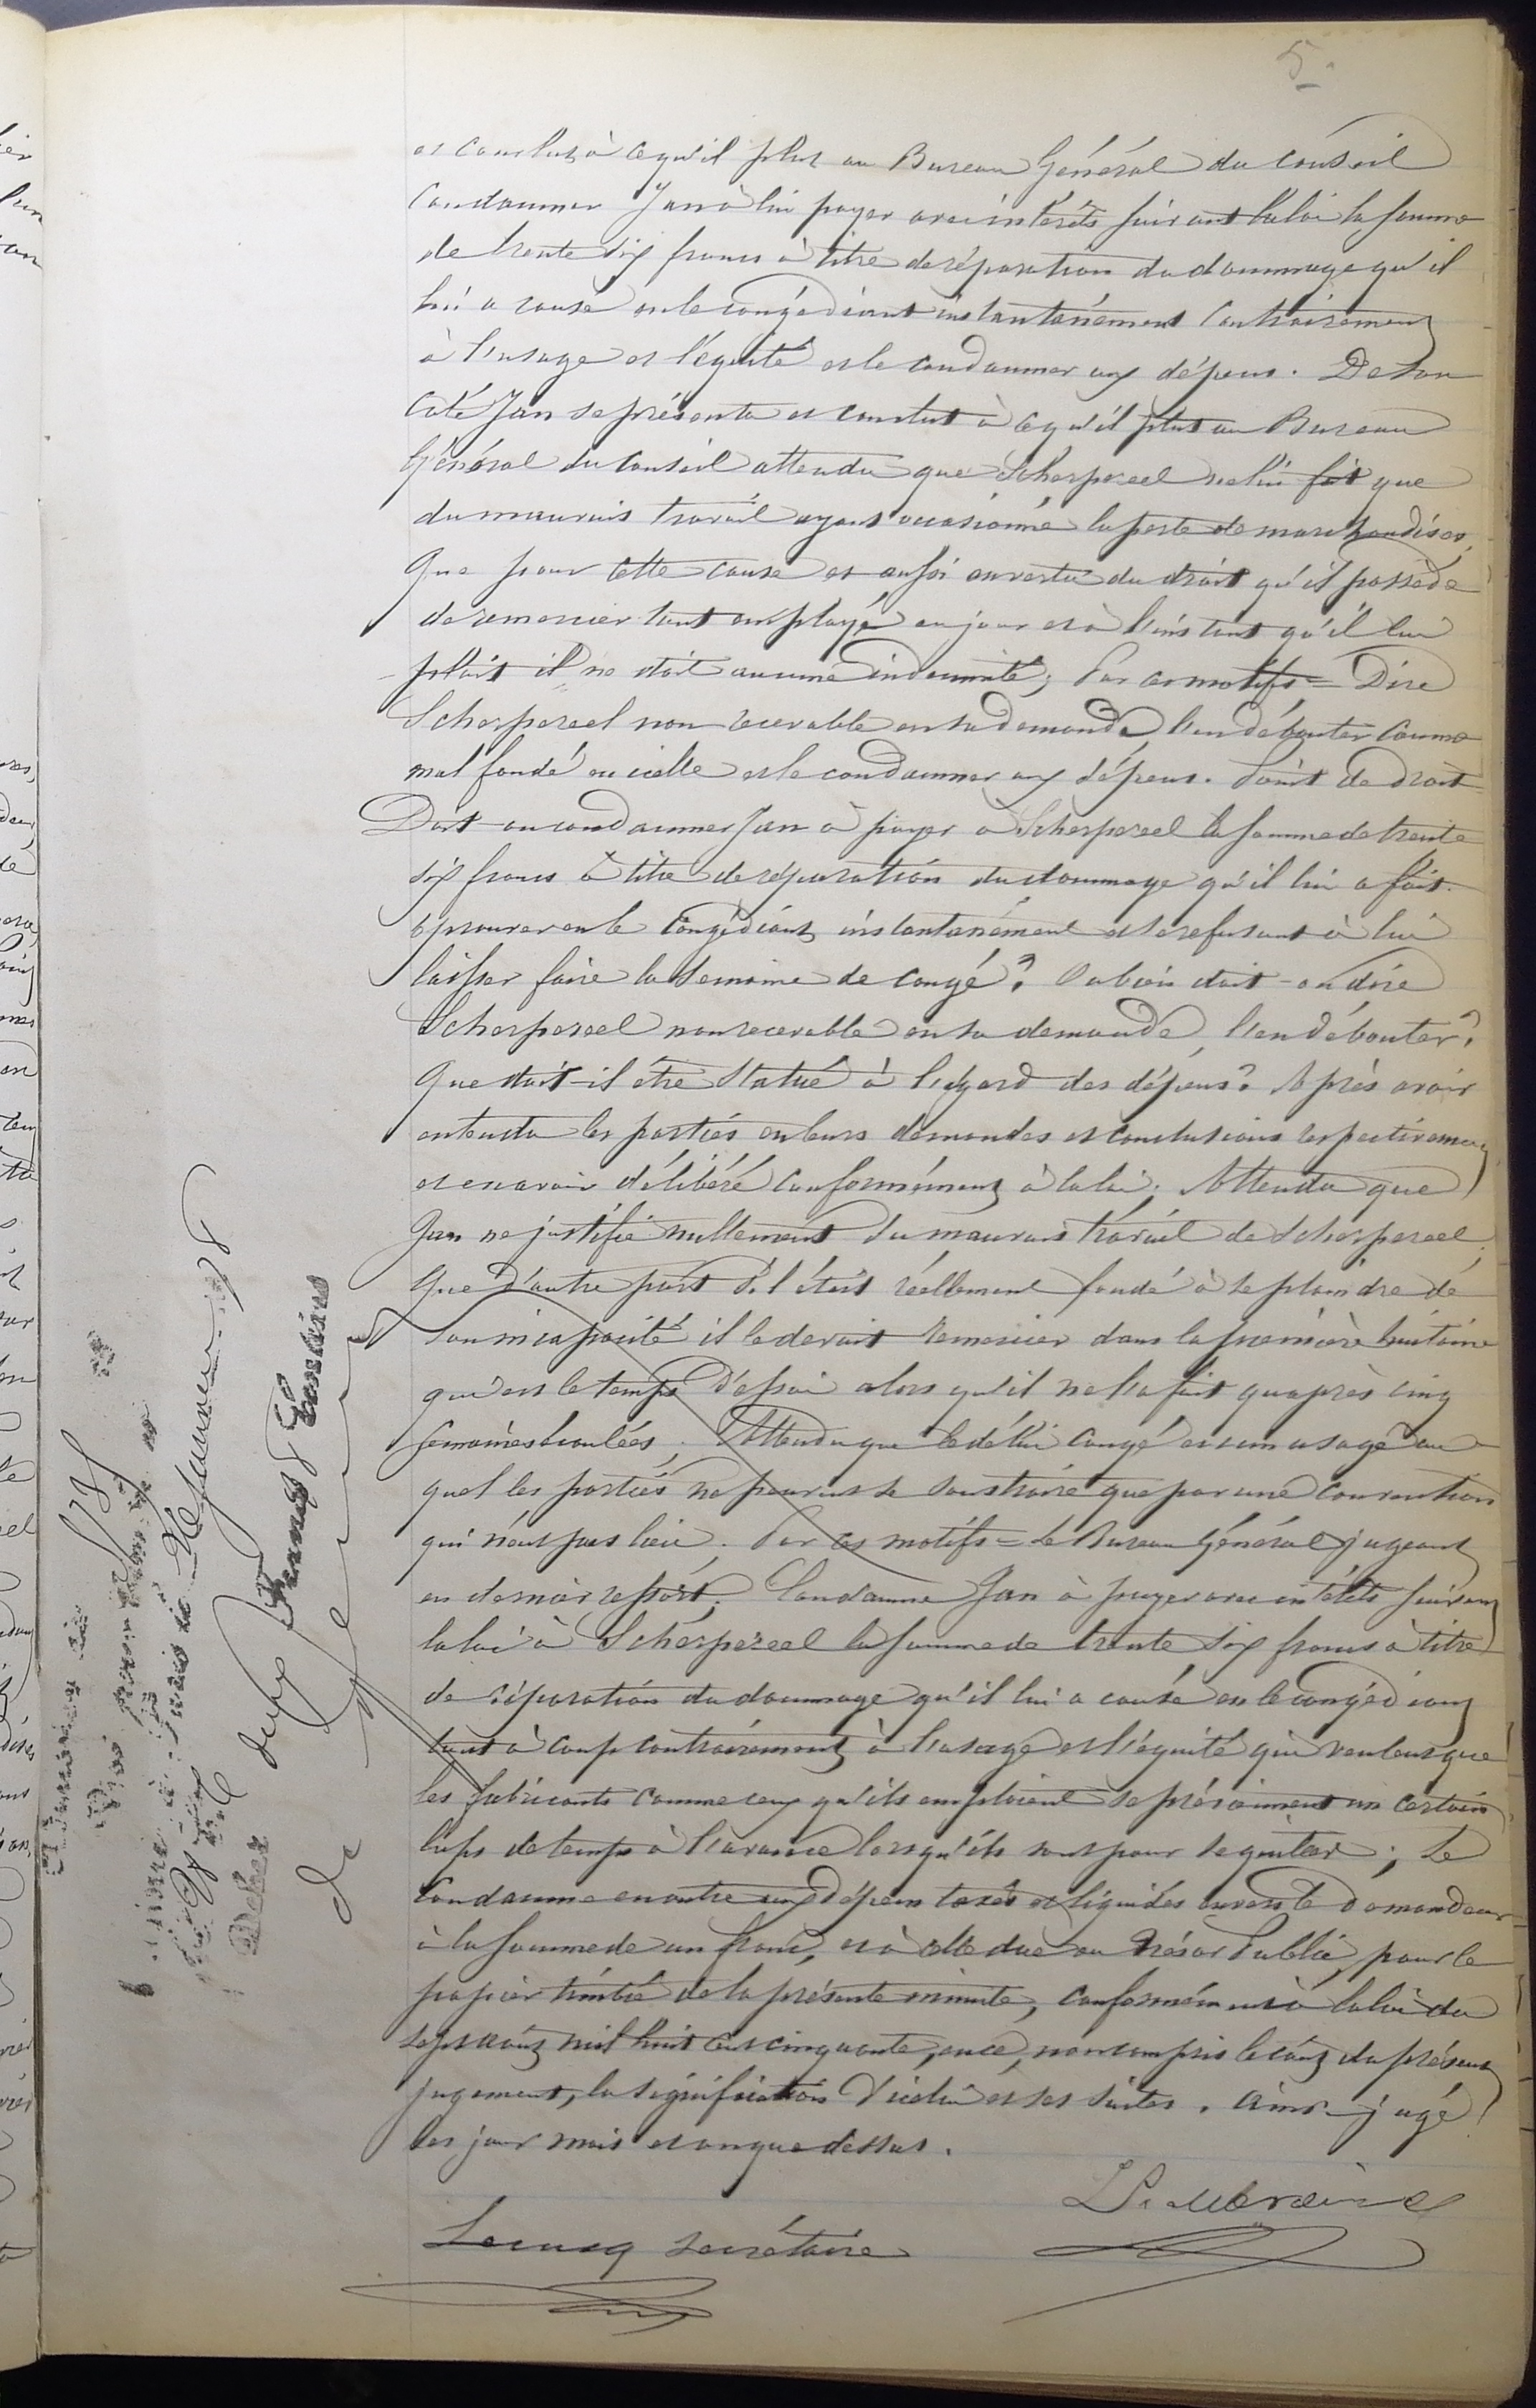 5.
et conclut à ce qu'il plut au Bureau Général du Conseil
Condamner Jan à lui payer avec intérêts suivant la loi la somme
de trente six francs à titre de réparation du dommage qu'il
lui a causé en le congédiant instantanément Contrairement
à l'usage et l'équité et le condamner aux dépens. De son
Coté Jan se présenta et conclut à ce qu'il plut au Bureau
Général du Conseil attendu que Scherpereel ne lui fait que
du mauvais travail ayant occasionné la perte de marchandises,
Que pour cette cause et aussi en vertu du droit qu'il possède
de remercier tout employé au jour et à l'instant qu'il lui
plait il ne doit aucune indemnité; Par ces motifs = Dire
Scherpereel non recevable en sa demande, l'en débouter comme
mal fondé en icelle et le condamner aux dépens. Point de droit
Doit-on condamner Jan à payer à Scherpereel la somme de trente
six francs à titre de réparation du dommage qu'il lui a fait
éprouver en le Congédiant instantanément et se refusant à lui
laisser faire la semaine de congé? Ou bien doit-on dire
Scherpereel non recevable en sa demande, l'en débouter?
Que doit-il être statué à l'égard des dépens? Après avoir
entendu les parties en leurs demandes et conclusions respectivement
et en avoir délibéré conformément à la loi; Attendu que
Jan ne justifie nullement du mauvais travail de Scherpereel,
Que d'autre part s'il était réellement fondé à se plaindre de
son incapacité il le devait remercier dans la première huitaine
qui est le temps d'essai alors qu'il ne l'a fait qu'après cinq
semaines écoulées; Attendu que le délai congé est un usage au
quel les parties ne peuvent se soustraire que par une convention
qui n'eut pas lieu. Par ces motifs = Le Bureau Général jugeant
en dernier ressort; Condamne Jan à payer avec intérêts suivant
la loi à Scherpereel la somme de trente six francs à titre
de réparation du dommage qu'il lui a causé en le congédiant
tout à coup contrairement à l'usage et l'équité qui veulent que
les fabricants comme ceux qu'ils emploient se préviennent un certain
laps de temps à l'avance lorsqu'ils sont pour se quitter; Le
Condamne en outre aux dépens taxés et liquidés envers le demandeur
à la somme de un franc, et à celle due au Trésor Public, pour le
papier timbré de la présente minute, conformément à la loi du
sept août mil huit cent cinquante, ence, non compris le coût du présent
jugement, la signification d'icelui et ses suites. Ainsi jugé
les jour mois et an que dessus.
Lecucq secrétaire